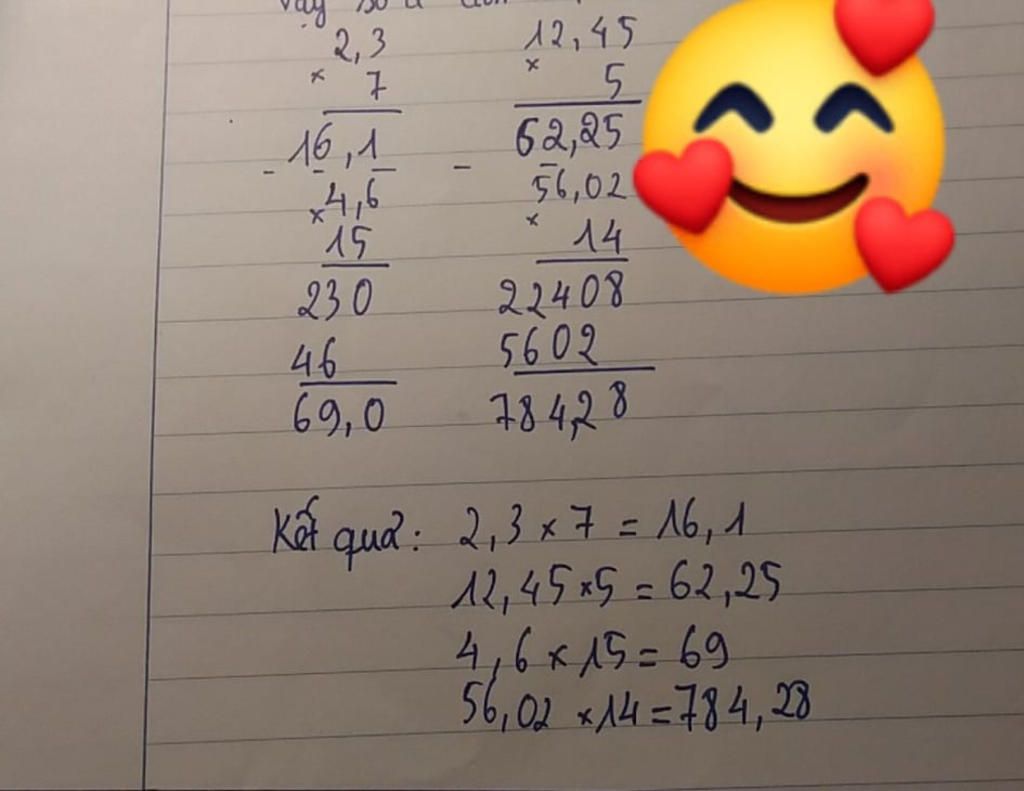 2,3 12,45
× 7 × 5
16,1 62,25
- - - - -
×4,6 56,02
15 × 14
230 22408
46 5602
69,0 784,28
Kết quả: 2,3 × 7 = 16,1
12,45 × 5 = 62,25
4,6 × 15 = 69
56,02 × 14 = 784,28